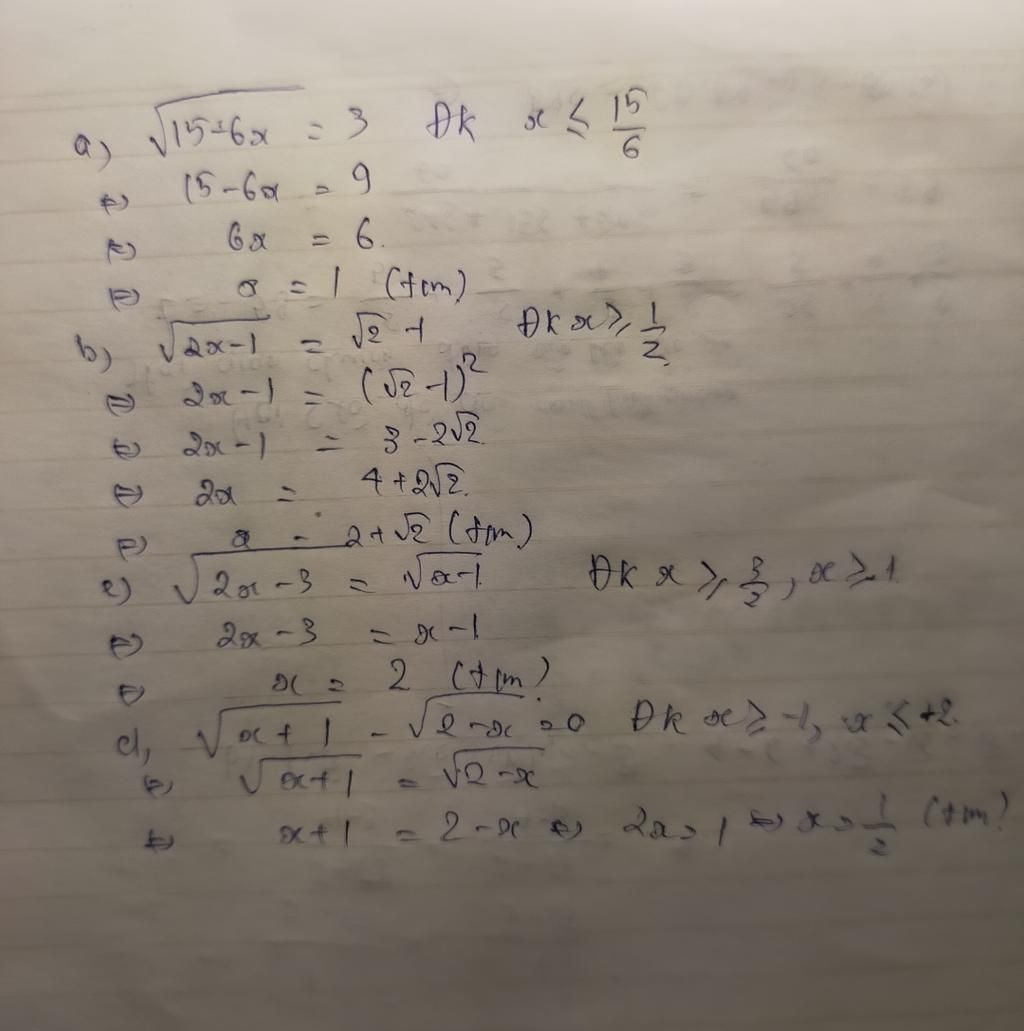 a) √15-6x = 3 ĐK x ≤ 15/6
⇔ 15-6x = 9
⇔ 6x = 6.
⇔ x = 1 (tm)
b) √2x-1 = √2 -1 ĐK x ≥ 1/2
⇔ 2x-1 = (√2 -1)²
⇔ 2x-1 = 3-2√2
⇔ 2x = 4+2√2.
⇔ x = 2+√2 (tm)
c) √2x-3 = √x-1 ĐK x ≥ 3/2, x ≥ 1
⇔ 2x-3 = x-1
⇔ x = 2 (tm)
d, √x+1 - √2-x = 0 ĐK x ≥ -1, x ≤ +2.
⇔ √x+1 = √2-x
⇔ x+1 = 2-x ⇔ 2x = 1 ⇔ x = 1/2 (tm)